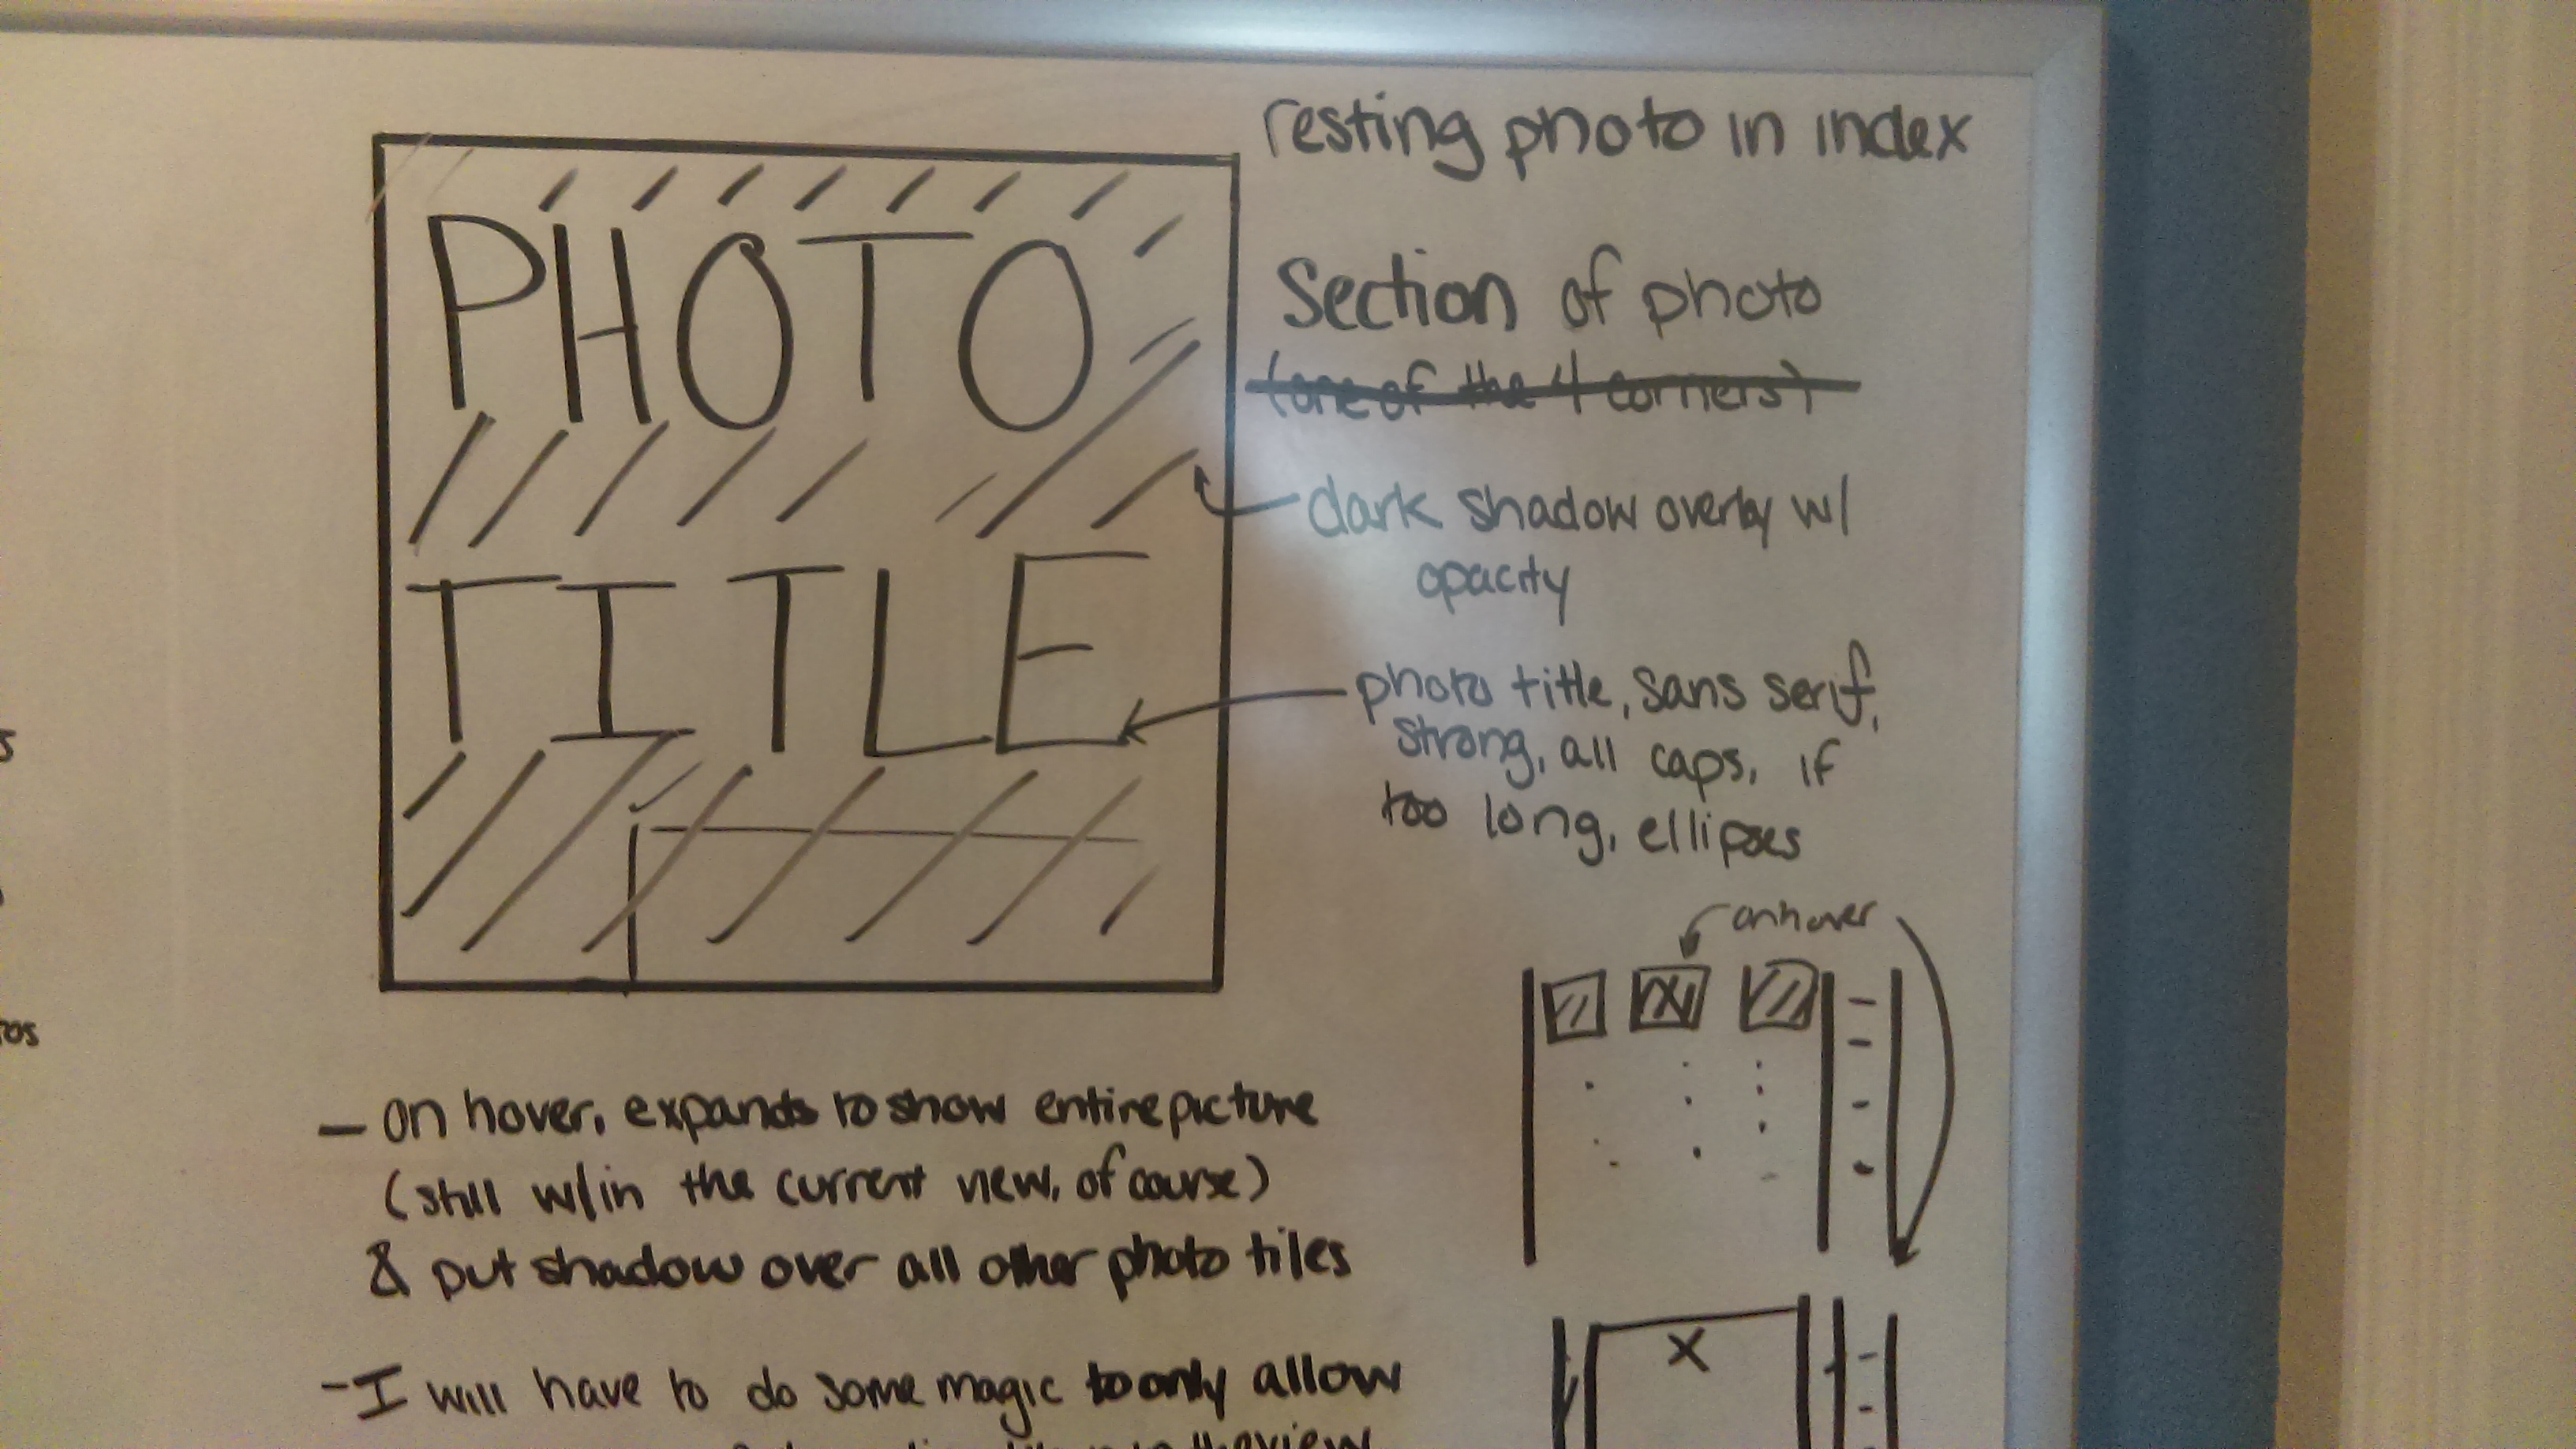 resting photo in index
PHOTO
TITLE
Section of photo
(one of the 4 corners)
dark shadow overlay w/
opacity
photo title, sans serif,
strong, all caps, if
too long, ellipses
on hover
- on hover, expands to show entire picture
(still w/in the current view, of course)
& put shadow over all other photo tiles
X
- I will have to do some magic to only allow
the view